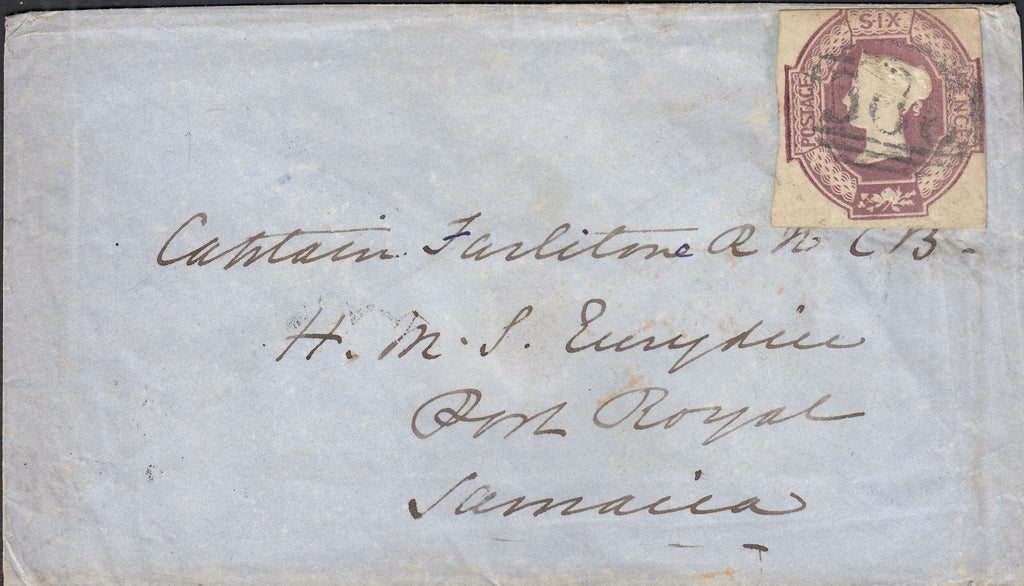 SIX
POSTAGE
Captain Farlitone R N C B -
H. M. S. Eurydice
Port Royal
Jamaica